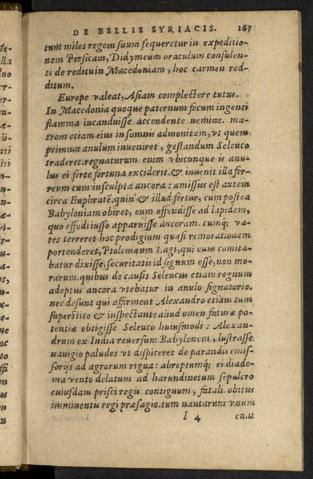 DE BELLIS SYRIACIS. 167
tum miles regem suum sequeretur in expeditio-
nem Persicam, Didymeum oraculum consulen-
ti de reditu in Macedoniam, hoc carmen red-
ditum.
Europe valeat, Asiam complectere tutus.
In Macedonia quoque paternum focum ingenti
flamma incanduisse accendente nemine. ma-
trem etiam eius in somnis admonitam, ut quem
primum anulum inueniret, gestandum Seleuco
traderet. regnaturum enim ubicunque is anu-
lus ei forte fortuna exciderit. & inuenit illa fer-
reum cum insculpta ancora: amissus est autem
circa Euphratē. quin & illud fertur, cum postea
Babyloniam obiret, eum offendisse ad lapidem,
quo effosso iusso apparuisse ancoram. cumq; va-
tes terreret hoc prodigium quasi remorationem
portenderet, Ptolemæum Lagi, qui cum comita-
batur dixisse, securitatis id signum esse, non mo-
rarum. quibus de causis Seleucus etiam regnum
adeptus ancora utebatur in anulo signatorio.
nec desunt qui affirment Alexandro etiam tum
superstite & inspectante aliud omen futuræ po-
tentiæ obtigisse Seleuco huiusmodi: Alexan-
drum ex India reuersum Babylonem, lustrasse
nauigio paludes ut dispiceret de parandis emis-
sorijs ad agrorum rigua: abreptumq; ei diade-
ma vento delatum ad harundinetum sepulcro
cuiusdam prisci regis contiguum, fatali obitus
imminentis regi præsagio. tum nautarum unum
l 4